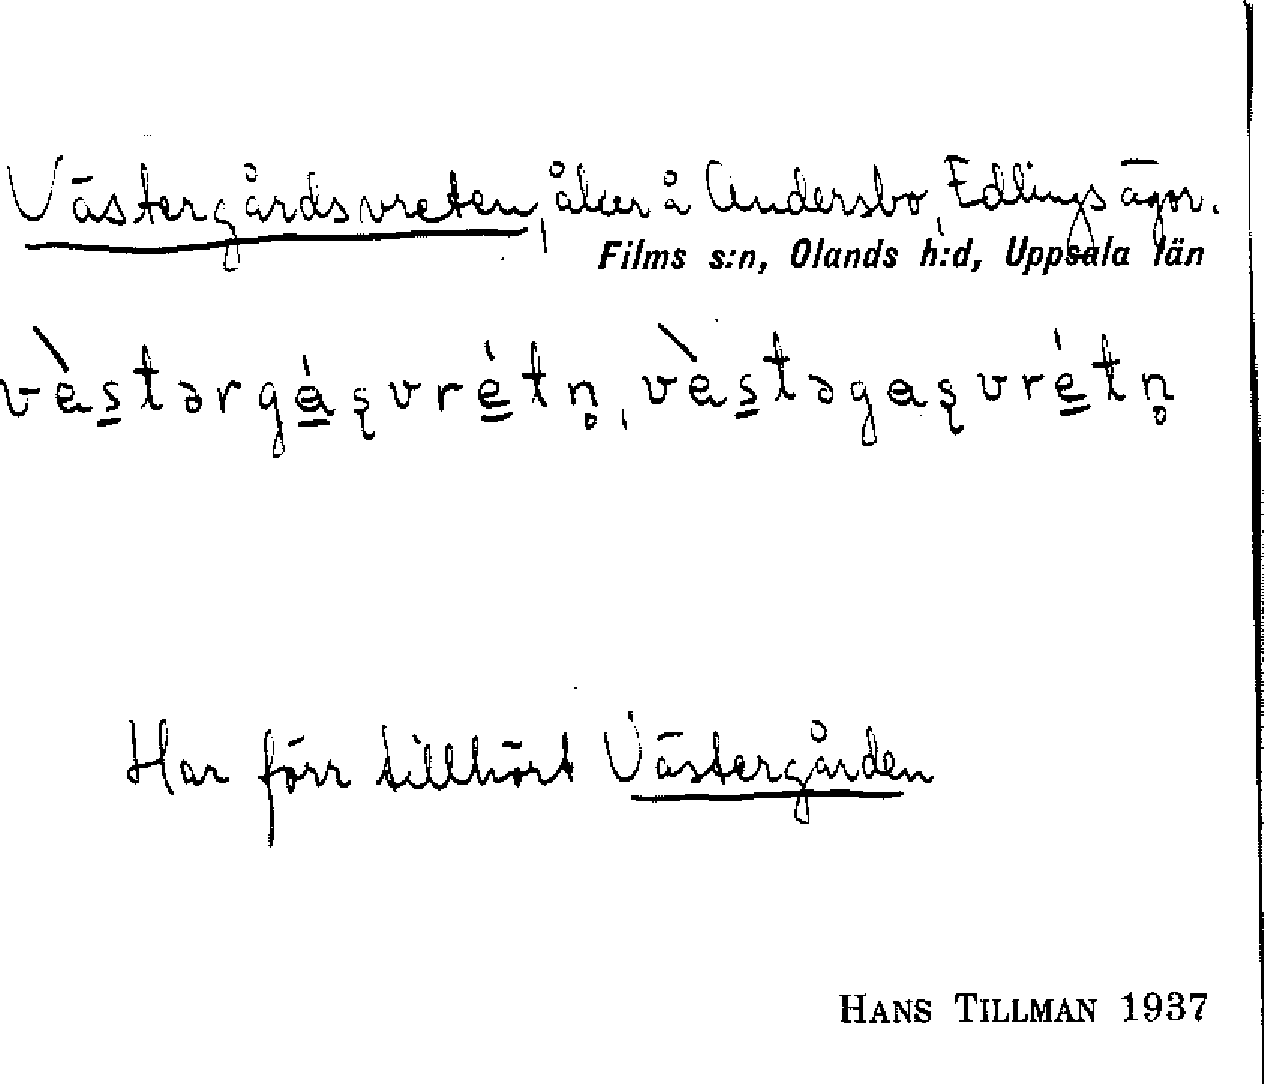 Västergårdsvreten, åker å Andersbo, Edlings ägor.
Films s:n, Olands h:d, Uppsala län
vàstərgásvrétn, vàstəgasvrétn
Har förr tillhört Västergården
HANS TILLMAN 1937